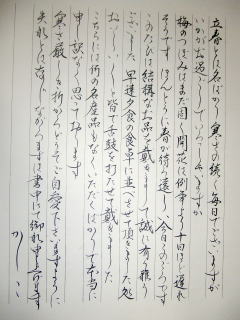 立春とは名ばかり 寒さの続く毎日でございますが
いかがお過ごしでいらっしゃいますか
梅のつぼみはまだ固く 開花は例年より十日ほど遅れ
そうです ほんとうに春が待ち遠しい今日このごろです
このたびは結構なお品を戴きまして誠に有り難う
ございました 早速夕食の食卓に並べさせて頂きました処
おいしいと皆で舌鼓を打たせて戴きました
こちらには何の名産品もなく いただくばかりで本当に
申し訳なく思っております
寒さ厳しき折からどうぞご自愛下さいますように
失礼とは存じながらまずは書中にて御礼申し上げます
かしこ